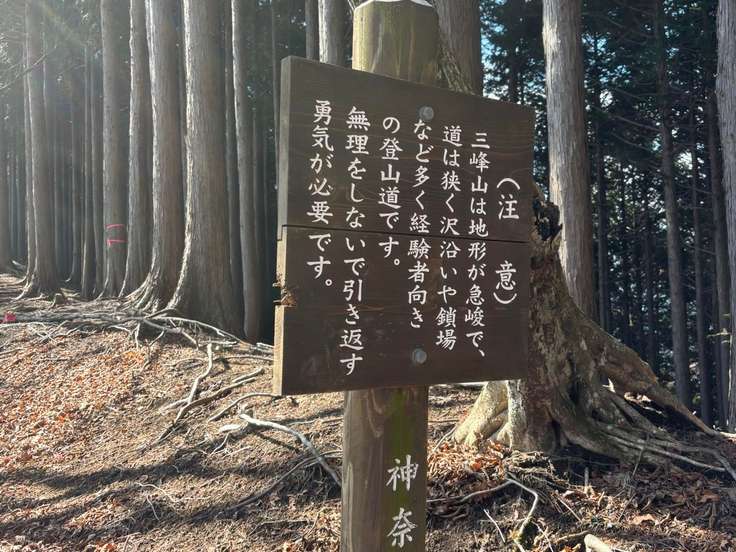 （注　意）
三峰山は地形が急峻で、
道は狭く沢沿いや鎖場
など多く経験者向き
の登山道です。
無理をしないで引き返す
勇気が必要です。
神奈